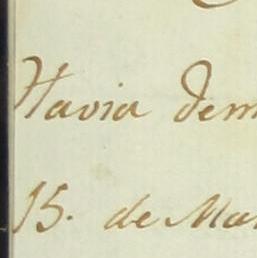 Havia dem
15. de Mar